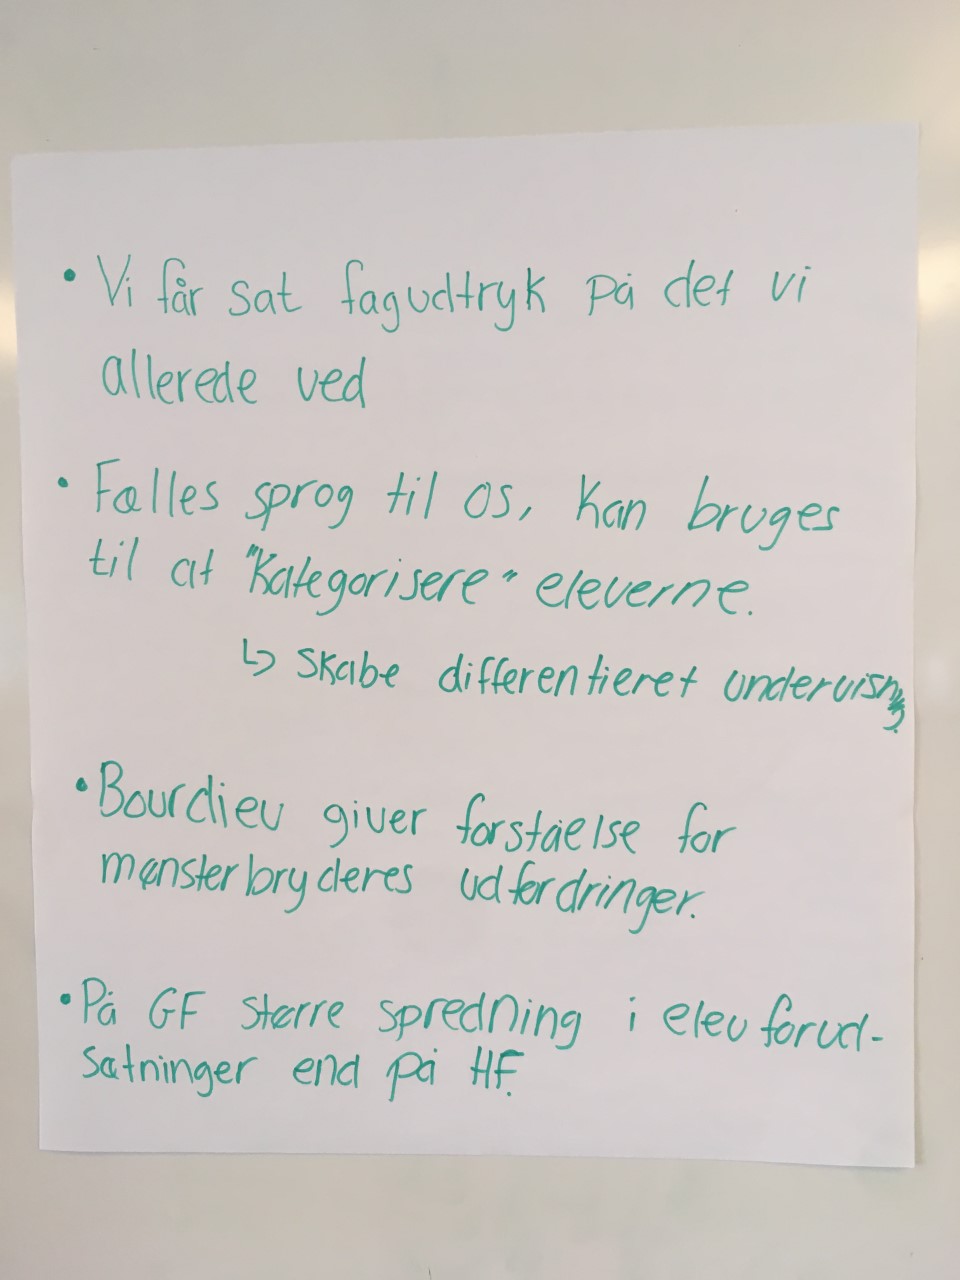 • Vi får sat fagudtryk på det vi
allerede ved
• Fælles sprog til os, kan bruges
til at "kategorisere" eleverne.
↳ skabe differentieret undervisn
• Bourdieu giver forståelse for
mønsterbryderes udfordringer.
• På GF større spredning i elevforud-
sætninger end på HF.